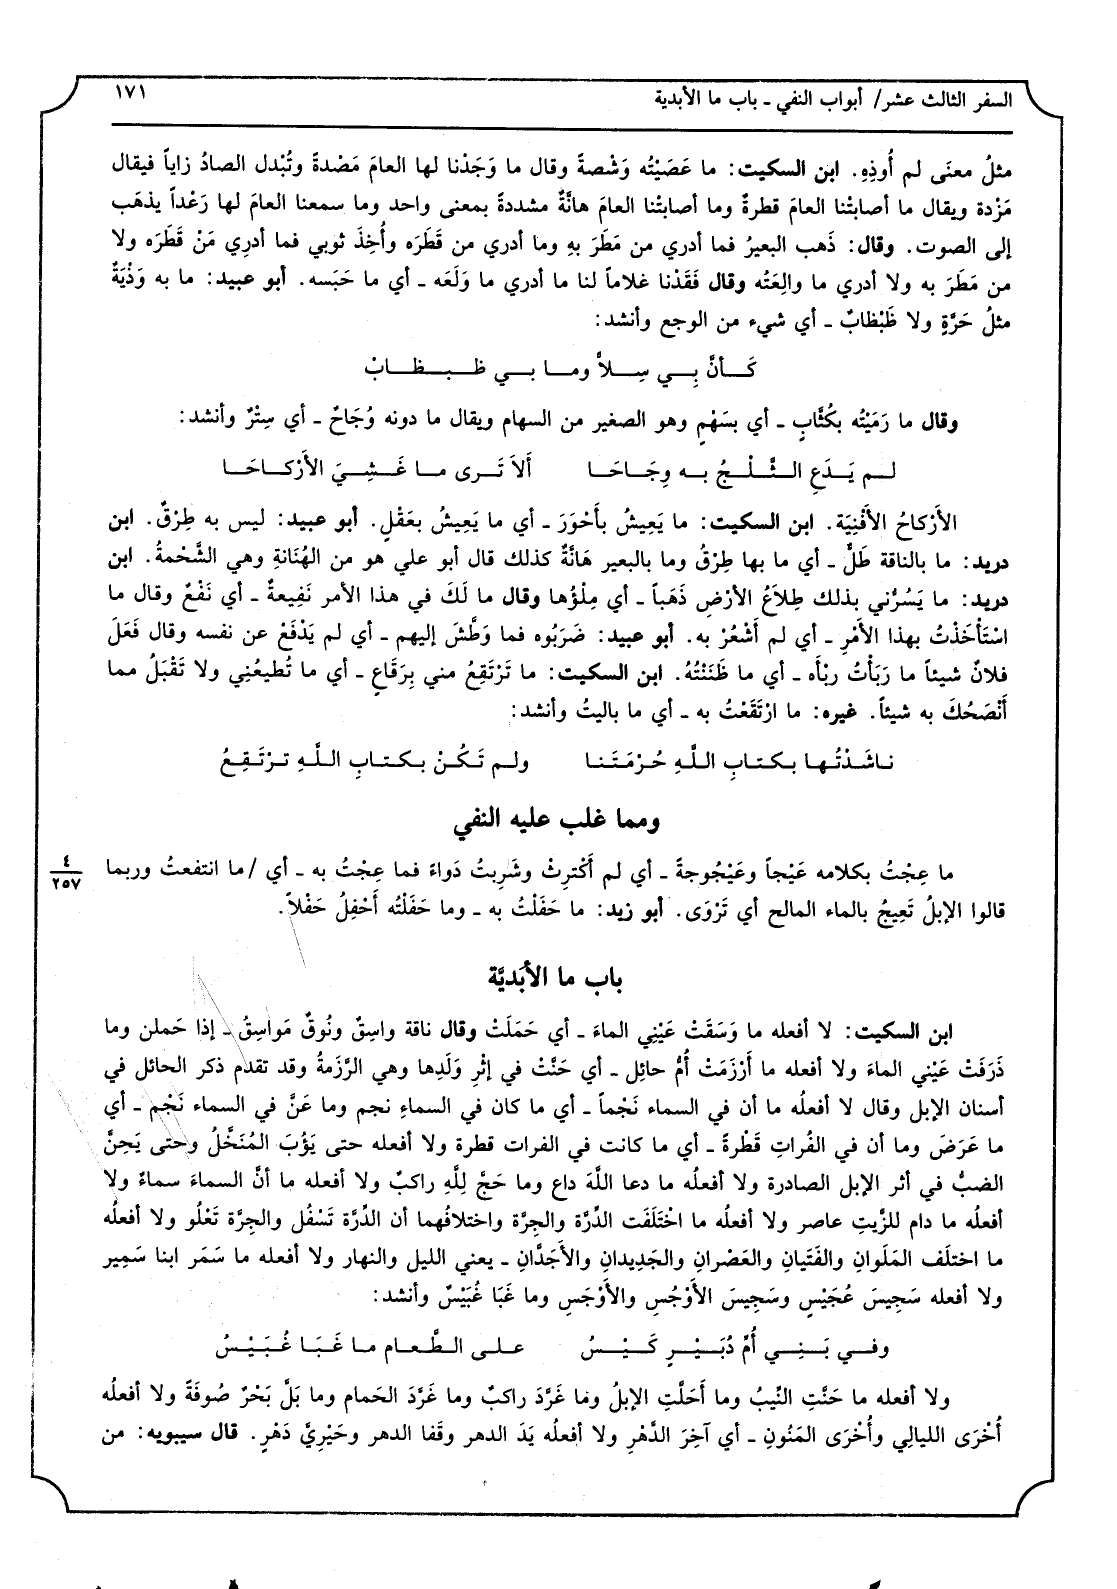 السفر الثالث عشر/ أبواب النفي ـ باب ما الأبدية
١٧١
مثلُ معنَى لم أُوذِهِ. ابن السكيت: ما عَصَيْتُه وَشْصةً وقال ما وَجَدْنا لها العامَ مَصْدةً وتُبْدل الصادُ زاياً فيقال
مَزْدة ويقال ما أصابتْنا العامَ قطرةٌ وما أصابتْنا العامَ هانَّةٌ مشددةً بمعنى واحد وما سمعنا العامَ لها رَعْداً يذهَب
إلى الصوت. وقال: ذَهب البعيرُ فما أدري من مَطَرَ بهِ وما أدري من قَطَرَه وأُخِذَ ثوبي فما أدرِي مَنْ قَطَرَه ولا
من مَطَرَ به ولا أدري ما والِعَتُه وقال فَقَدْنا غلاماً لنا ما أدري ما وَلَعَه ـ أي ما حَبَسه. أبو عبيد: ما به وَذْيَةٌ
مثلُ حَزَّةٍ ولا ظَبْظابٌ ـ أي شيء من الوجع وأنشد:
كَـأنَّ بِـي سِـلاًّ ومـا بـي ظَبْـظـابْ
وقال ما رَمَيْتُه بكُثَّابٍ ـ أي بسَهْمٍ وهو الصغير من السهام ويقال ما دونه وُجَاحٌ ـ أي سِتْرٌ وأنشد:
لـم يَـدَعِ الـثَّـلْـجُ بـه وِجَـاحَـا أَلاَ تَـرى مـا غَـشِـيَ الأَرْكـاحَـا
الأَرْكاحُ الأَفْنِيَة. ابن السكيت: ما يَعِيشُ بأَحْوَرَ ـ أي ما يَعِيشُ بعَقْلٍ. أبو عبيد: ليس به طِرْقٌ. ابن
دريد: ما بالناقة طَلٌّ ـ أي ما بها طِرْقٌ وما بالبعير هَانَّةٌ كذلك قال أبو علي هو من الهُنَانةِ وهي الشَّحْمةُ. ابن
دريد: ما يَسُرُّني بذلك طِلاَعُ الأرْضِ ذَهَباً ـ أي مِلْؤُها وقال ما لَكَ في هذا الأمر نَفِيعةٌ ـ أي نَفْعٌ وقال ما
اسْتَأْخَذْتُ بهذا الأَمْرِ ـ أي لم أَشْعُرْ به. أبو عبيد: ضَرَبُوه فما وَطَّشَ إليهم ـ أي لم يَدْفَعْ عن نفسه وقال فَعَلَ
فلانٌ شيئاً ما رَبَأْتُ ربْأَه ـ أي ما ظَنَنْتُهُ. ابن السكيت: ما تَرْتَقِعُ مني بِرَقَاعِ ـ أي ما تُطيعُنِي ولا تَقْبَلُ مما
أَنْصَحُكَ به شيئاً. غيره: ما ارْتَقَعْتُ به ـ أي ما باليتُ وأنشد:
نـاشَـدْتُـهـا بـكـتـابِ الـلَّـهِ حُـرْمَـتَـنـا ولـم تَـكُـنْ بـكـتـابِ الـلَّـهِ تـرْتَـقِـعُ
ومما غلب عليه النفي
ما عِجْتُ بكلامه عَيْجاً وعَيْجُوجةً ـ أي لم أَكْترِثْ وشَرِبتُ دَواءً فما عِجْتُ به ـ أي /ما انتفعتُ وربما
٤
٢٥٧
قالوا الإبلُ تَعِيجُ بالماء المالح أي تَرْوَى. أبو زيد: ما حَفَلْتُ به ـ وما حَفَلْتُه أَحْفِلُ حَفْلاً.
باب ما الأبَديَّة
ابن السكيت: لا أفعله ما وَسَقَتْ عَيْنِي الماءَ ـ أي حَمَلَتْ وقال ناقة واسِقٌ ونُوقٌ مَواسِقُ ـ إذا حَملن وما
ذَرَفَتْ عَيْني الماءَ ولا أفعله ما أَرْزَمَتْ أُمُّ حائل ـ أي حَنَّتْ في إثْرِ وَلَدِها وهي الرَّزَمةُ وقد تقدم ذكر الحائل في
أسنان الإبل وقال لا أفعلُه ما أن في السماء نَجْماً ـ أي ما كان في السماءِ نجم وما عَنَّ في السماء نَجْم ـ أي
ما عَرَضَ وما أن في الفُراتِ قَطْرةً ـ أي ما كانت في الفرات قطرة ولا أفعله حتى يَؤُبَ المُنَخَّلُ وحتى يَحِنَّ
الضبُّ في أثر الإبل الصادرة ولا أفعلُه ما دعا اللَّهَ داع وما حَجَّ لِلَّهِ راكبٌ ولا أفعله ما أنَّ السماءَ سماءٌ ولا
أفعلُه ما دام للزَّيتِ عاصر ولا أفعلُه ما اخْتَلَفَت الدِّرَّة والجِرَّة واختلافُهما أن الدِّرَّة تَسْفُل والجِرَّة تَعْلُو ولا أفعلُه
ما اختلَف المَلَوان والفَتَيان والعَصْرانِ والجَدِيدانِ والأَجَدَّانِ ـ يعني الليل والنهار ولا أفعله ما سَمَر ابنا سَمِير
ولا أفعله سَجِيسَ عُجَيْسٍ وسَجِيسَ الأَوْجُس والأَوْجَسِ وما غَبَا غُبَيْسٌ وأنشد:
وفـي بَـنِـي أُمِّ دُبَـيْـرٍ كَـيْـسُ عـلـى الـطَّـعـام مـا غَـبَـا غُـبَـيْـسُ
ولا أفعله ما حَنَّتِ النِّيبُ وما أَحَلَّتِ الإبلُ وما غَرَّدَ راكبٌ وما غَرَّدَ الحَمام وما بَلَّ بَحْرٌ صُوفَةً ولا أفعلُه
أُخْرَى الليالِي وأُخْرَى المَنُونِ ـ أي آخِرَ الدَّهْرِ ولا أفعلُه يَدَ الدهر وقَفا الدهر وحَيْرِيَّ دَهْرٍ. قال سيبويه: من